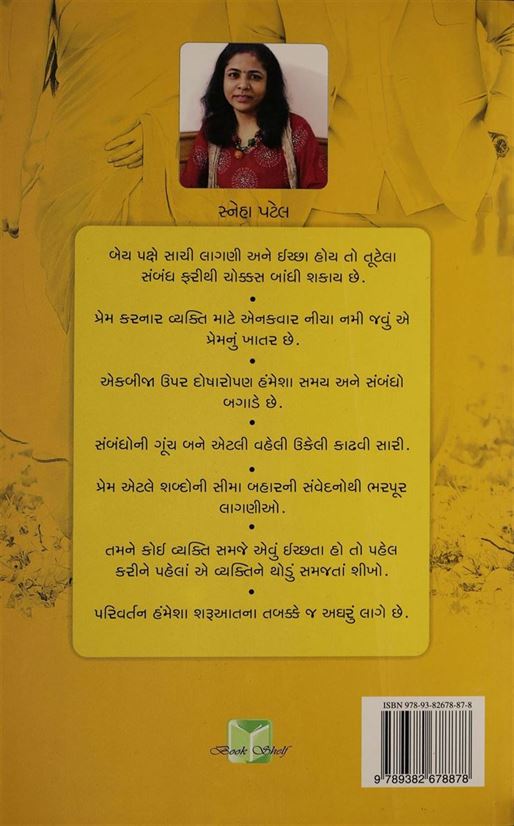 સ્નેહા પટેલ
બેય પક્ષે સાચી લાગણી અને ઈચ્છા હોય તો તૂટેલા
સંબંધ ફરીથી ચોક્કસ બાંધી શકાય છે.
•
પ્રેમ કરનાર વ્યક્તિ માટે એનકવાર નીચા નમી જવું એ
પ્રેમનું ખાતર છે.
•
એકબીજા ઉપર દોષારોપણ હંમેશા સમય અને સંબંધો
બગાડે છે.
•
સંબંધોની ગૂંચ બને એટલી વહેલી ઉકેલી કાઢવી સારી.
•
પ્રેમ એટલે શબ્દોની સીમા બહારની સંવેદનોથી ભરપૂર
લાગણીઓ.
•
તમને કોઈ વ્યક્તિ સમજે એવું ઈચ્છતા હો તો પહેલ
કરીને પહેલાં એ વ્યક્તિને થોડું સમજતાં શીખો.
•
પરિવર્તન હંમેશા શરૂઆતના તબક્કે જ અઘરું લાગે છે.
ISBN 978-93-82678-87-8
9 789382 678878
Book Shelf